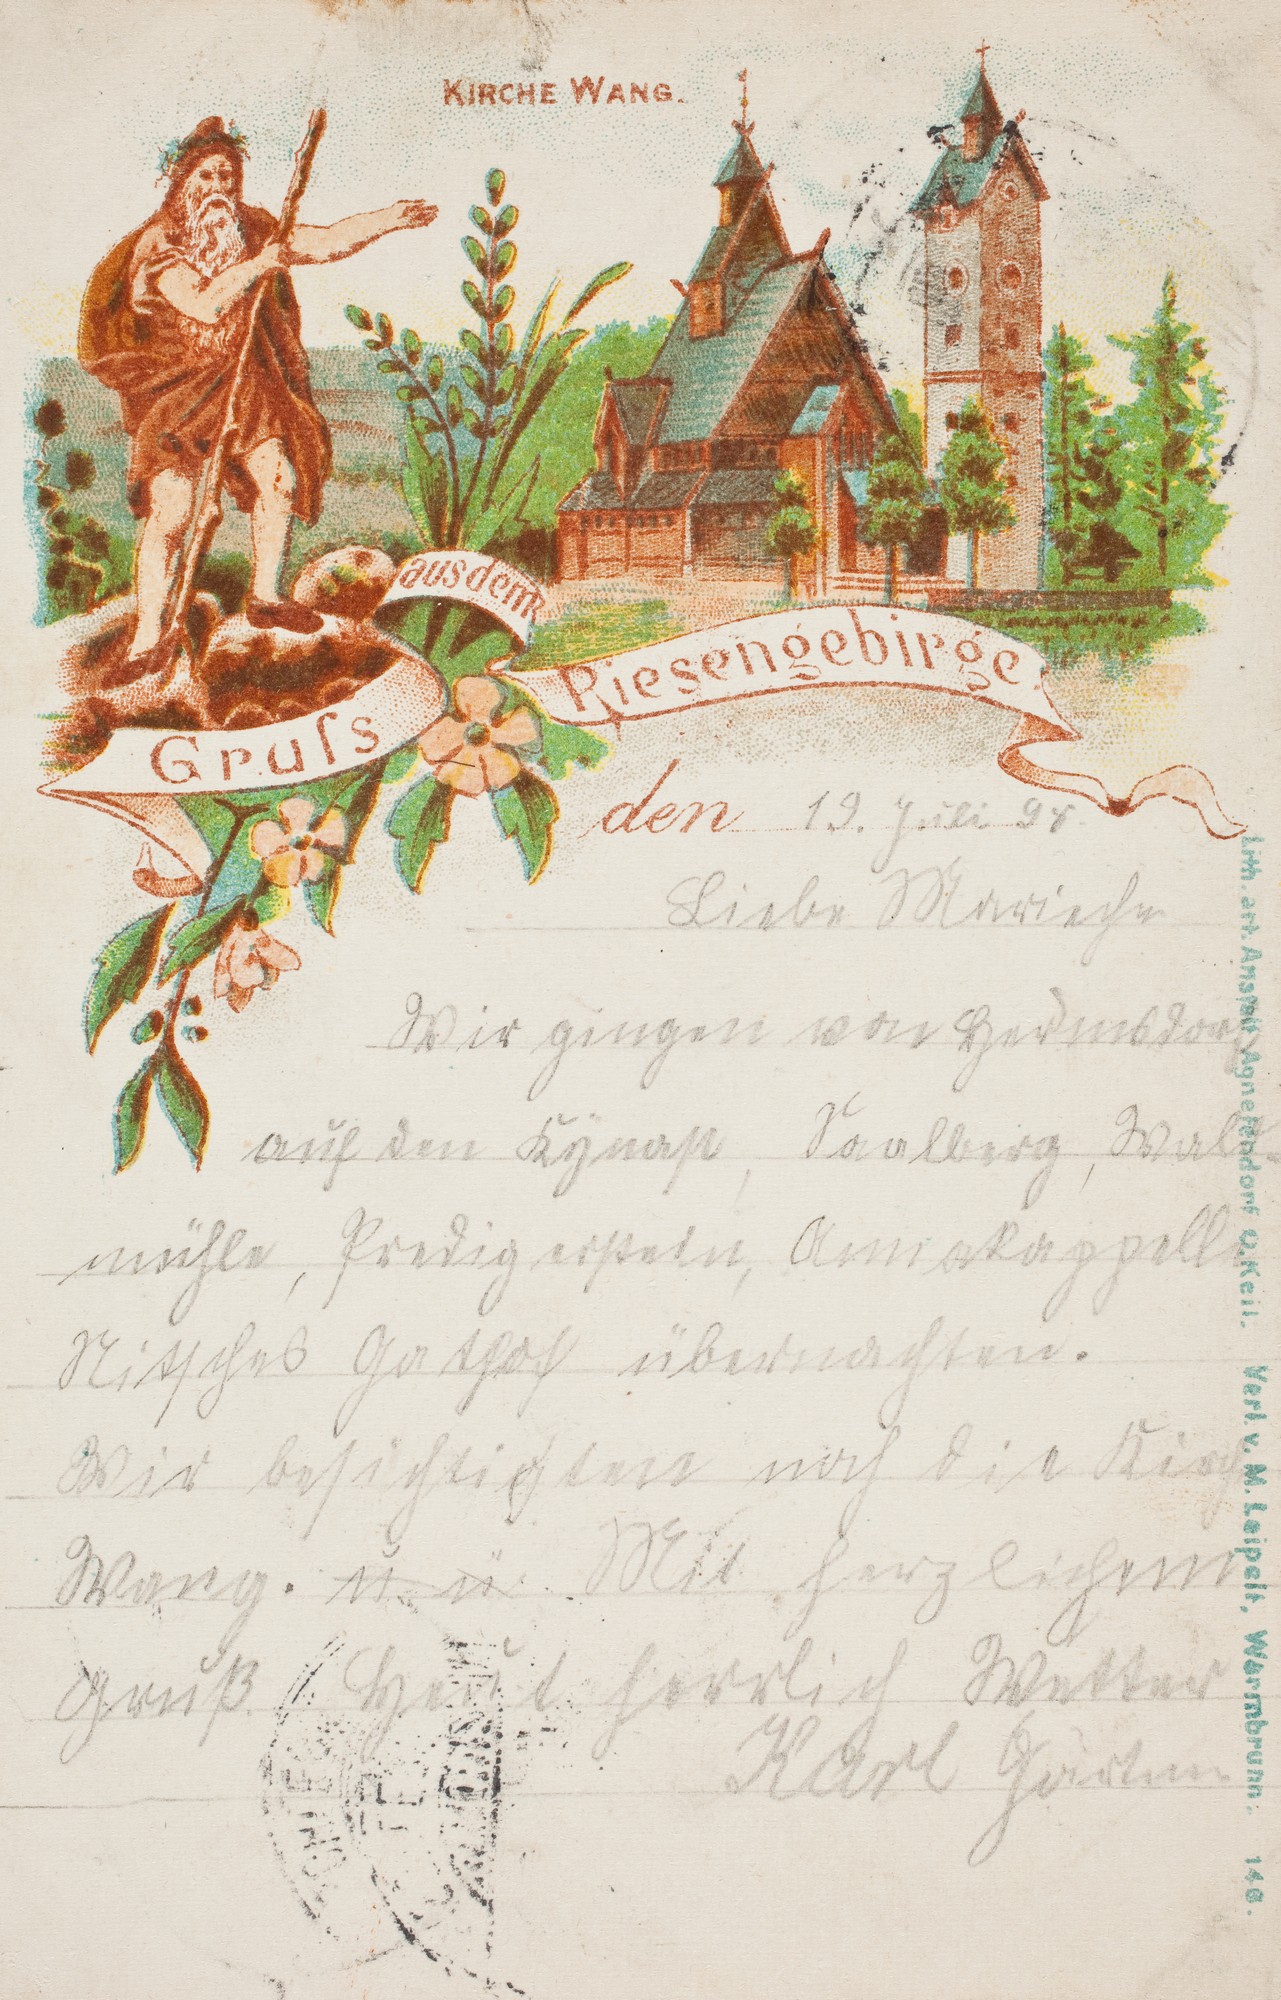 KIRCHE WANG.
Gruſs aus dem Riesengebirge.
den 19. Juli 98
Liebe Mariechen
Wir gingen von Hermsdorf
auf den Kynast, Saalberg, Wald-
mühle, Predigerstein, Annakappelle
Nitsches Gasthof übernachten.
Wir besichtigten noch die Kirche
Wang. Mit herzlichem
Gruß. Heut herrlich Wetter
Karl
Lith. art. Anstalt Agnetendorf O. Keil. Verl. v. M. Leipelt, Warmbrunn. 146.